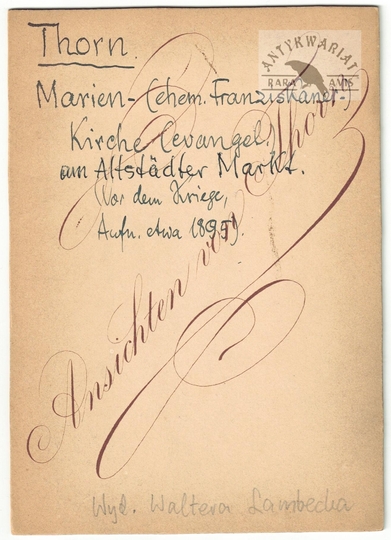 Thorn.
ANTYKWARIAT
RARA AVIS
Marien- (ehem. Franziskaner-)
Kirche (evangel.)
am Altstädter Markt.
Vor dem Kriege,
Aufn. etwa 1895.
Ansichten von Thorn
Wyd. Waltera Lambecka